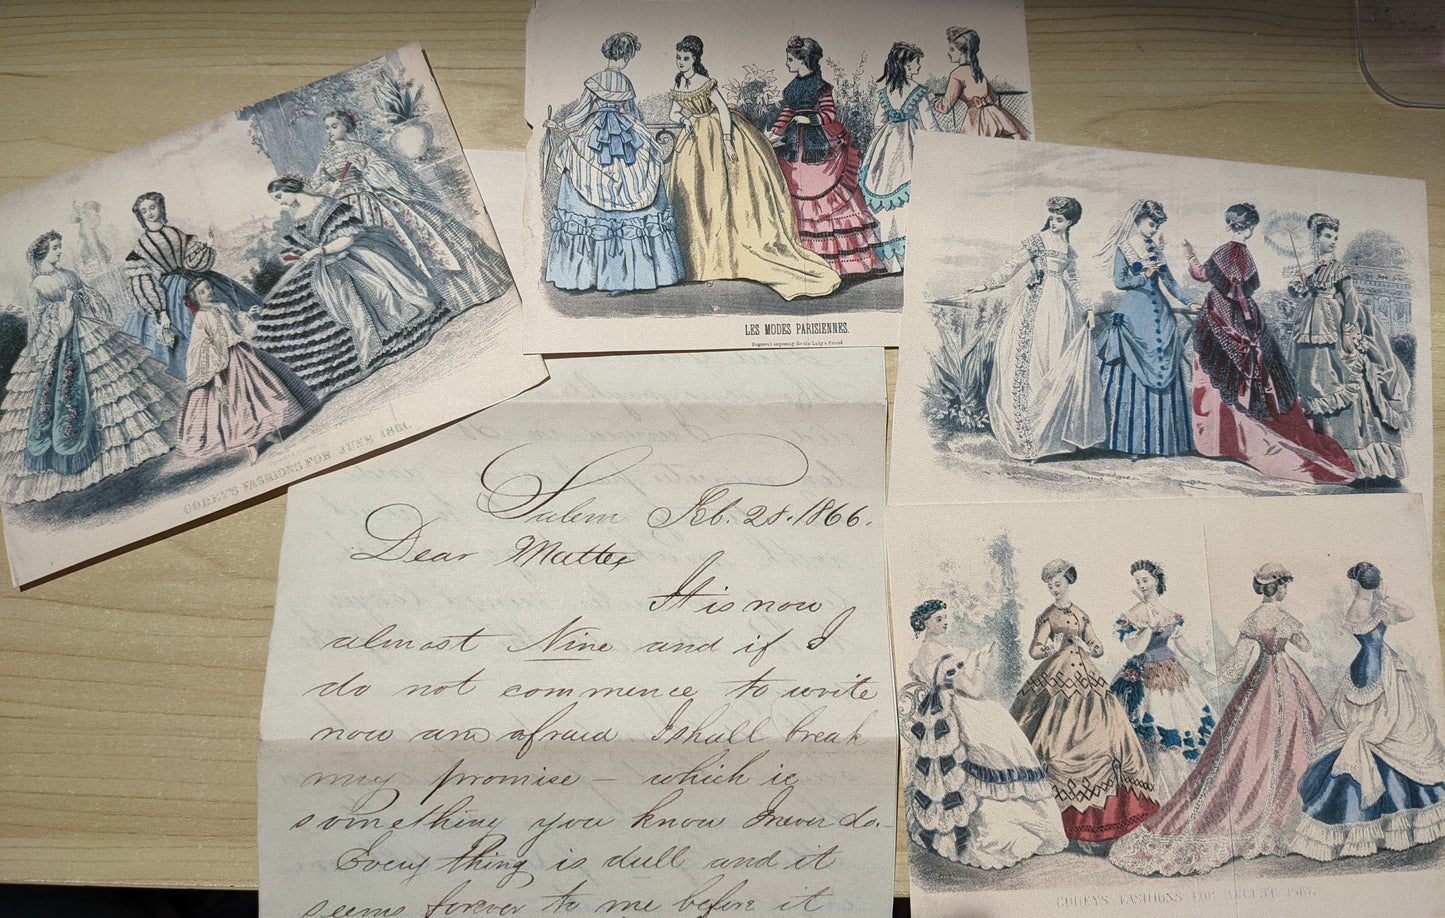 GODEY'S FASHIONS FOR JUNE 1861.
LES MODES PARISIENNES.
Engraved expressly for the Lady's Friend
Salem Feb. 28. 1866.
Dear Matter
It is now
almost Nine and if I
do not commence to write
now am afraid I shall break
my promise – which is
something you know I never do.
Every thing is dull and it
seems forever to me before it
GODEY'S FASHIONS FOR AUGUST 1867.